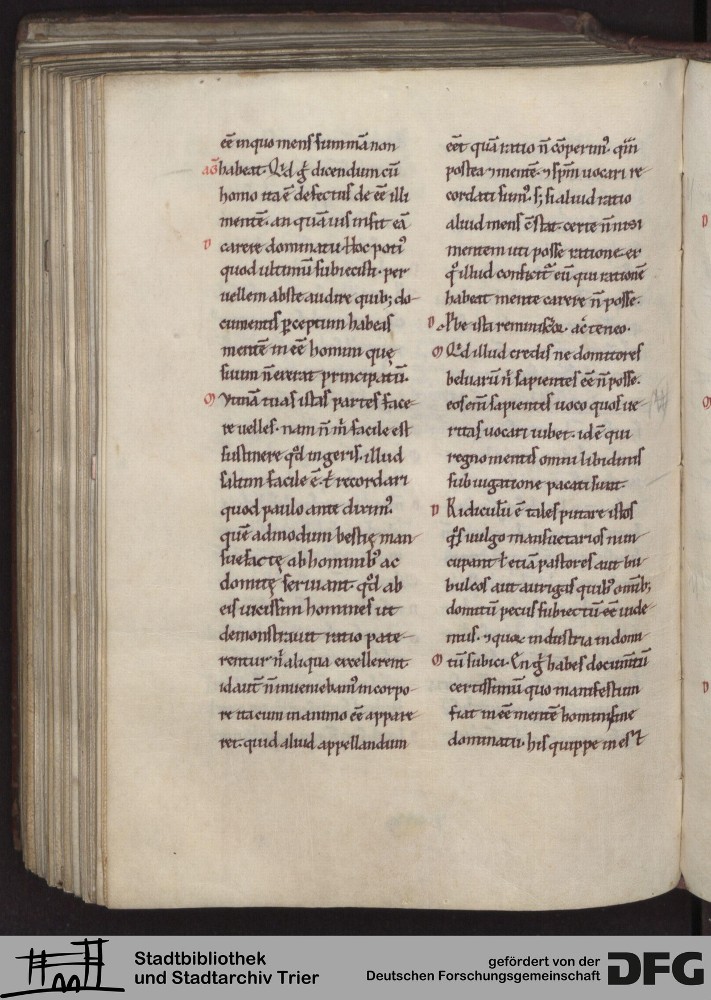 ee͂ inquo mens summā non
aḡ habeat. Qͥd ḡ dicendum cū
homo ita ē defectus de ee͂ illi
mentē. an quāuis insit eā
D carere dominatu. Hoc poti᷒
quod ultimū subiecisti. per
uellem abs te audire quib; do-
cumentis ꝑceptum habeas
mentē in ee͂ homini quę
suum n̄ exerat principatū.
M Vtinā tu as istas partes face-
re uelles. nam n̄ m̄ facile est
sustinere qd̄ ingeris. illud
saltim facile ē. t̄ recordari
quod paulo ante diximꝰ.
quē admodum bestię man-
suefactę ab hominibꝰ ac
domitę seruiant. qd̄ ab
eis uicissim homines ut
demonstrauit ratio pate-
rentur n̄ aliqua excellerent
id aut̄ n̄ inueniebamꝰ in corpo-
re ita cum in animo ee͂ appare-
ret. quid aliud appellandum
ee͂t quā ratio n̄ cōperimꝰ. quā
postea ⁊ mentē. ⁊ sp̄m uocari re-
cordati sumꝰ. s; si aliud ratio
aliud mens cōstat. certe n̄ nisi
mentem uti posse ratione. ex
qͦ illud conficit᷑ eū qui rationē
habeat mente carere n̄ posse.
D Probe ista reminiscor. ac teneo.
M Qͥd illud credis ne domitores
beluarū n̄ sapientes ee͂ n̄ posse.
eos eni͂ sapientes uoco quos ue-
ritas uocari iubet. id ē qui
regno mentis omni libidinis
subiugatione pacati sunt.
D Ridiculū ē tales putare istos
qͦs uulgo mansuetarios nun-
cupant t̄ etiā pastores aut bu-
bulcos aut aurigas quibꝰ omīb;
domitū pecus subiectū ee͂ uide-
mus. ⁊ quorum industria indomi-
M tū subici. En ḡ habes documtū
certissimū quo manifestum
fiat in ee͂ mentē homini sine
dominatu. his quippe in est
Stadtbibliothek
und Stadtarchiv Trier
gefördert von der
Deutschen Forschungsgemeinschaft
DFG